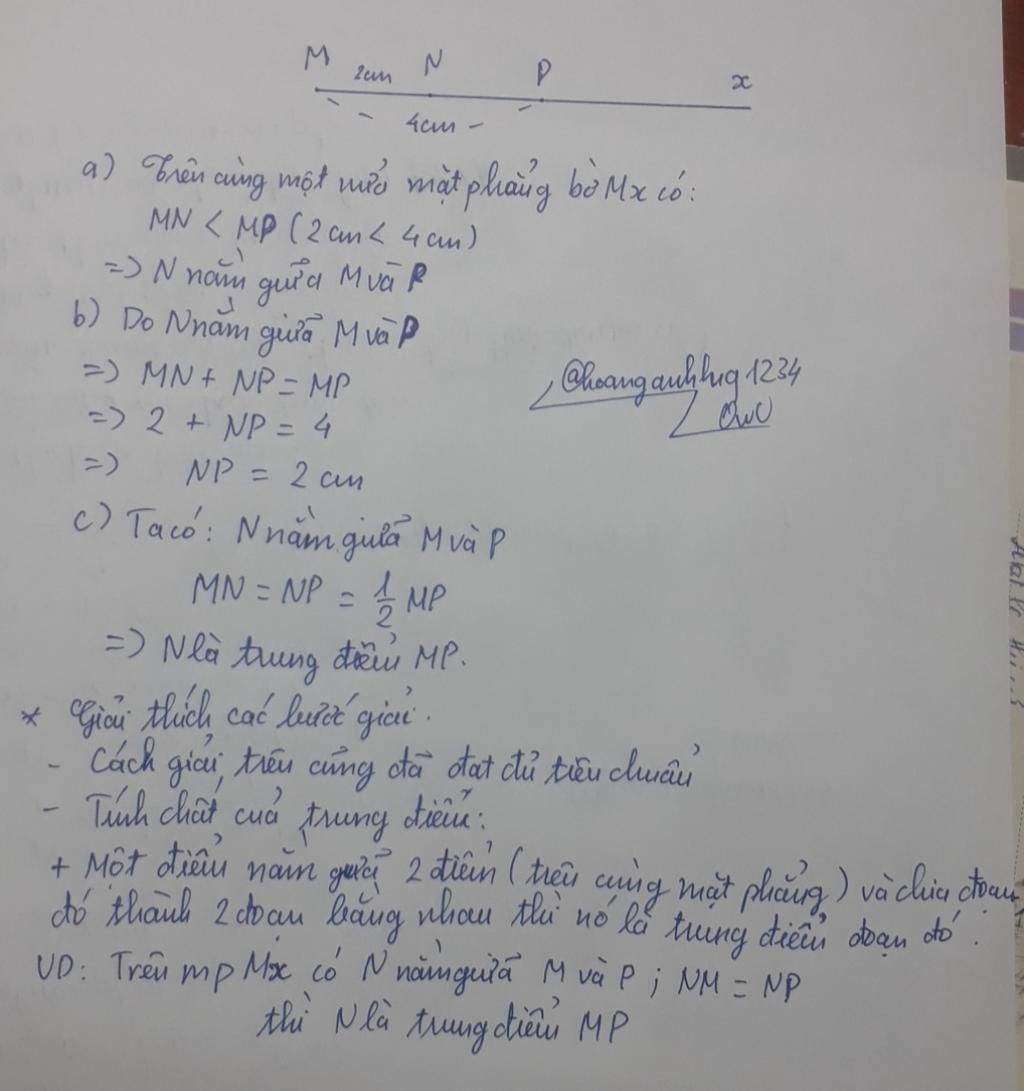 M 2cm N P x
4cm
a) Trên cùng một nửa mặt phẳng bờ Mx có:
MN < MP (2cm < 4cm)
=> N nằm giữa M và P
b) Do N nằm giữa M và P
=> MN + NP = MP
@hoanganhhg1234
=> 2 + NP = 4
OwO
=> NP = 2 cm
c) Ta có: N nằm giữa M và P
MN = NP = 1/2 MP
=> N là trung điểm MP.
* Giải thích các bước giải.
- Cách giải trên cũng đã đạt đủ tiêu chuẩn
- Tính chất của trung điểm:
+ Một điểm nằm giữa 2 điểm (trên cùng mặt phẳng) và chia đoạn
đó thành 2 đoạn bằng nhau thì nó là trung điểm đoạn đó.
VD: Trên mp Mx có N nằm giữa M và P ; NM = NP
thì N là trung điểm MP